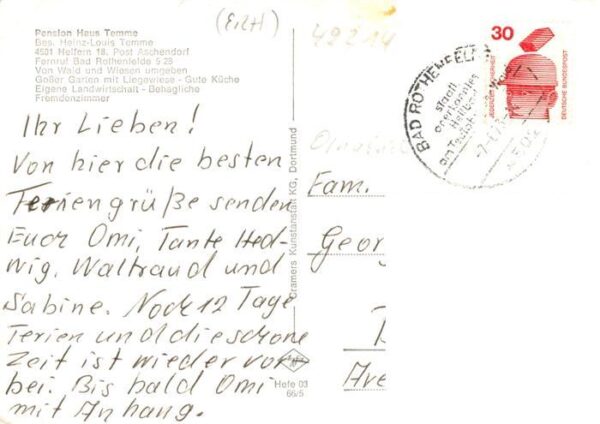 Pension Haus Temme
Bes. Heinz-Louis Temme
4501 Helfern 18. Post Aschendorf
Fernruf Bad Rothenfelde 5 28
Von Wald und Wiesen umgeben
Großer Garten mit Liegewiese - Gute Küche
Eigene Landwirtschaft - Behagliche
Fremdenzimmer
Ihr Lieben!
Von hier die besten
Feriengrüße senden
Euch Omi, Tante Hed-
wig, Waltraud und
Sabine. Noch 12 Tage
Ferien und die schöne
Zeit ist wieder vor-
bei. Bis bald Omi
mit Anhang.
Cramers Kunstanstalt KG, Dortmund
Hefe 03
66/5
49214
Fam.
Geor
Ave
BAD ROTHENFELDE
staatl.
anerkanntes
Heilbad
am Teutob.
30
DEUTSCHE BUNDESPOST